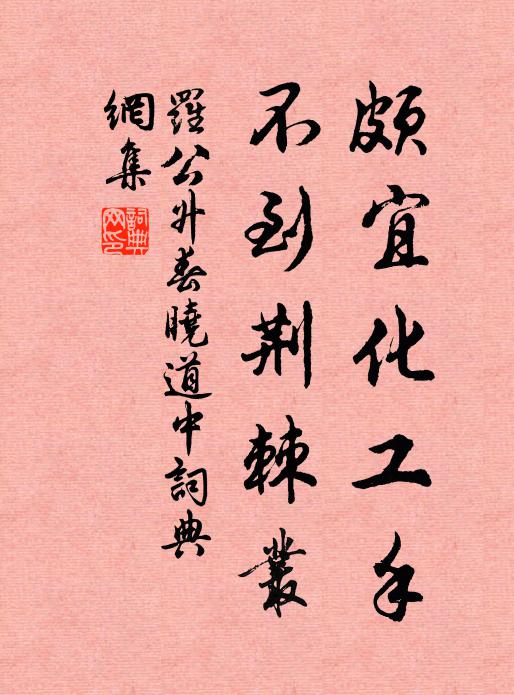 頗宜化工手
不到荆棘叢
羅公升春曉道中詞典
網集
詞典
网印